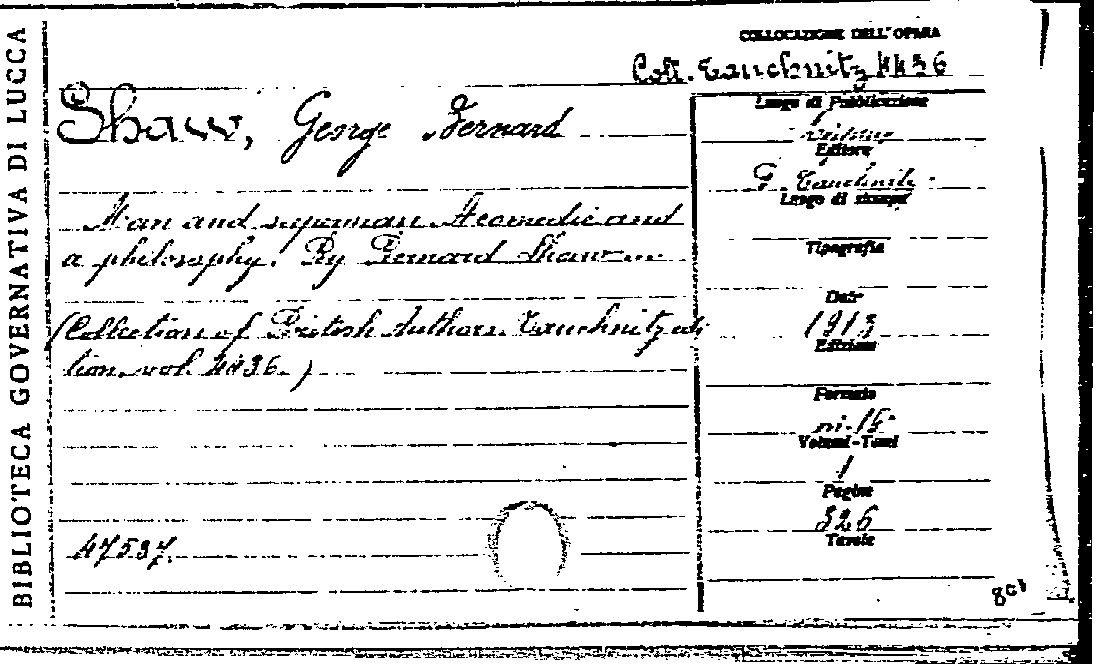 BIBLIOTECA GOVERNATIVA DI LUCCA
COLLOCAZIONE DELL'OPERA
Coll. Tauchnitz 4436
Shaw, George Bernard
Man and superman. A comedie and
a philosophy. By Bernard Shaw...
(Collection of British Authors. Tauchnitz edi
tion. vol. 4436.)
47537.
Luogo di Pubblicazione
Editore
F. Tauchnitz
Luogo di stampa
Tipografia
Data
1913
Edizione
Formato
in-16°
Volumi-Tomi
1
Pagine
326
Tavole